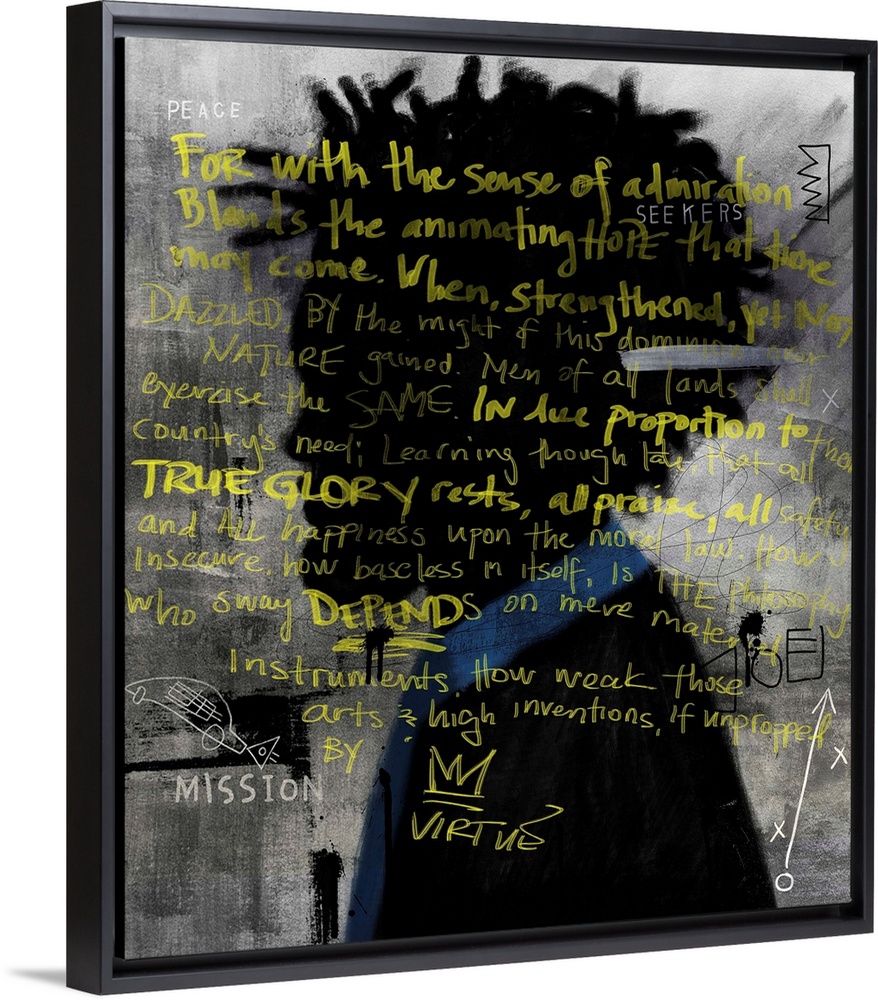 PEACE
FOR with the sense of admiration
SEEKERS
Blends the animating HOPE that time
may come. When, strengthened, yet Not
DAZZLED, BY the might of this dominion over
NATURE gained. Men of all lands shall
exercise the SAME. IN due proportion to their
country's need; Learning though late that all
TRUE GLORY rests, all praise, all safety
and All happiness upon the moral law. How
Insecure, how baseless in itself, Is THE philosophy
who sway DEPENDS on mere material
Instruments. How weak those
arts & high inventions, If unpropped
BY
MISSION
VIRTUE
X
X
X